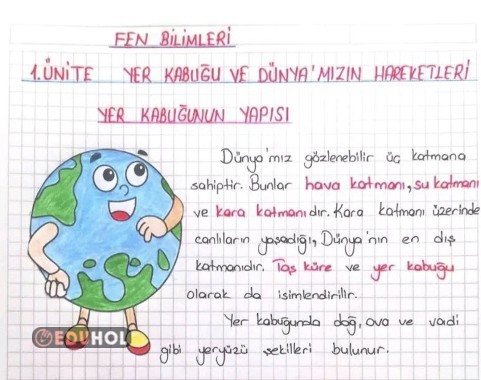 FEN BİLİMLERİ
1.ÜNİTE YER KABUĞU VE DÜNYA'MIZIN HAREKETLERİ
YER KABUĞUNUN YAPISI
Dünya'mız gözlenebilir üç katmana
sahiptir. Bunlar hava katmanı, su katmanı
ve kara katmanıdır. Kara katmanı üzerinde
canlıların yaşadığı, Dünya'nın en dış
katmanıdır. Taş küre ve yer kabuğu
olarak da isimlendirilir.
Yer kabuğunda dağ, ova ve vadi
gibi yeryüzü şekilleri bulunur.
EDUHOL